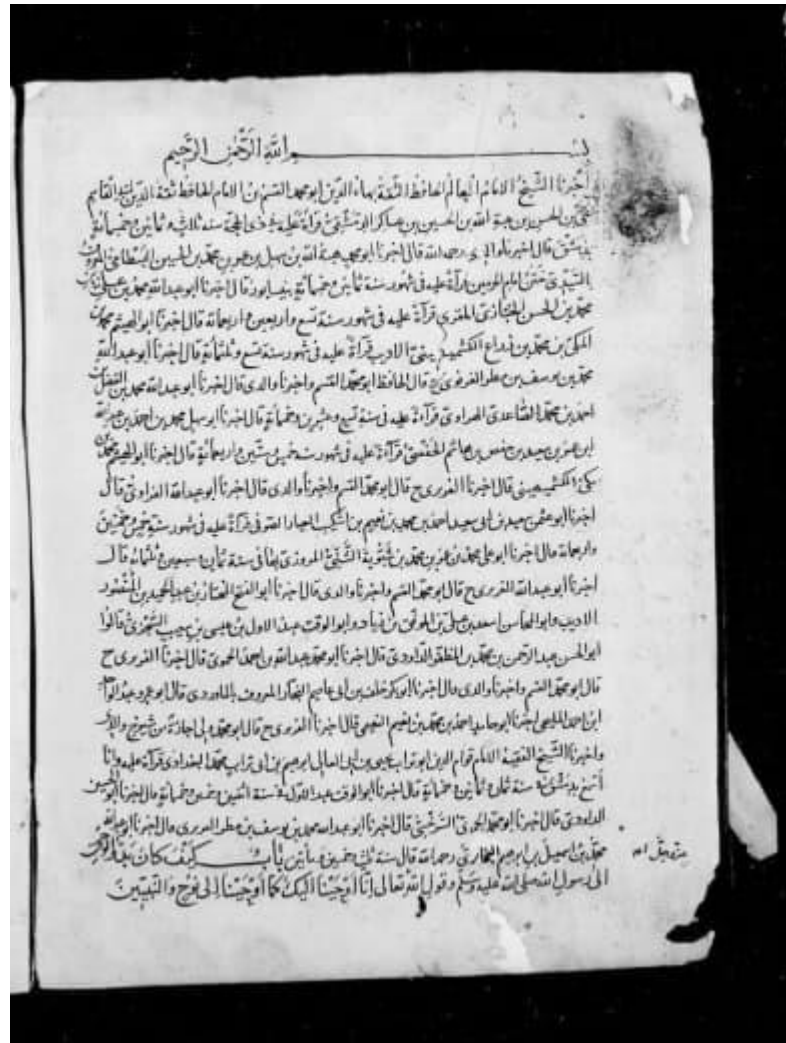 بسم الله الرحمن الرحيم
أخبرنا الشيخ الامام العالم الحافظ الثقة بهاء الدين ابو محمد القسم بن الامام الحافظ ثقة الدين ابي القاسم
علي بن الحسن بن هبة الله بن الحسين بن عساكر الدمشقي قراءة عليه في ذي الحجة سنة ثلاث وثمانين وخمسمائة
بدمشق قال اخبرنا والدي رحمه الله قال اخبرنا ابو محمد هبة الله بن سهل بن عمر بن محمد بن الحسين البسطامي المعروف
بالسيدي ختن امام الحرمين قراءة عليه في شهور سنة ثمانين وخمسمائة بنيسابور قال اخبرنا ابو عبد الله محمد بن علي بن
محمد بن الحسن الخبازي المقري قراءة عليه في شهور سنة تسع واربعين واربعمائة قال اخبرنا ابو الهيثم محمد بن
المكي بن محمد بن زراع الكشميهني الاديب قراءة عليه في شهور سنة تسع وثلثمائة قال اخبرنا ابو عبد الله
محمد بن يوسف بن مطر الفربري ح قال الحافظ ابو محمد القسم واخبرنا والدي قال اخبرنا ابو عبد الله محمد بن الفضل بن
احمد بن محمد الصاعدي الفراوي قراءة عليه في سنة تسع وعشرين وخمسمائة قال اخبرنا ابو سهل محمد بن احمد بن عبد الله
ابن عمر بن سعيد بن حفص بن هاشم الحفصي قراءة عليه في شهور سنة خمس وستين واربعمائة قال اخبرنا ابو الهيثم محمد بن
مكي الكشميهني قال اخبرنا الفربري ح قال ابو محمد القسم واخبرنا والدي قال اخبرنا ابو عبد الله الفراوي قال
اخبرنا ابو عثمن سعيد بن ابي سعيد احمد بن محمد بن نعيم بن اشكاب العيار الصوفي قراءة عليه في شهور سنة خمس وخمسين
واربعمائة قال اخبرنا ابو علي محمد بن عمر بن محمد بن شبوية الشبي المروزي بها في سنة ثمان وسبعين وثلثمائة قال
اخبرنا ابو عبد الله الفربري ح قال ابو محمد القسم واخبرنا والدي قال اخبرنا ابو الفتح المختار بن عبد الحميد بن المنتصر
الاديب وابو المحاسن اسعد بن علي بن الموفق بن زياد وابو الوقت عبد الاول بن عيسى بن شعيب السجزي قالوا
ابو الحسن عبد الرحمن بن محمد بن المظفر الداودي قال اخبرنا ابو محمد عبد الله بن احمد الحموي قال اخبرنا الفربري ح
قال ابو محمد القسم واخبرنا والدي قال اخبرنا ابو بكر خلف بن ابي عاصم النجار المعروف قال ابو عمر وعبد الواحد
ابن احمد المليحي اخبرنا ابو حامد احمد بن محمد بن نعيم النعيمي قال اخبرنا الفربري ح قال ابو محمد ولي اجازة من شيوخ
واخبرنا الشيخ الفقيه الامام قوام الدين ابو تراب يحيى بن ابي المعالي ابرهيم بن ابي تراب محمد البغدادي قراءة عليه وانا
اسمع بدمشق في سنة ثمان وثمانين وخمسمائة قال اخبرنا ابو الوقت عبد الاول في سنة اثنين وخمسين وخمسمائة قال اخبرنا ابو الحسن
الداودي قال اخبرنا ابو محمد الحموي السرخسي قال اخبرنا ابو عبد الله محمد بن يوسف بن مطر الفربري قال اخبرنا ابو عبد الله
محمد بن اسمعيل بن ابرهيم البخاري رحمه الله قال سنة ثلث وخمسين ومأتين باب كيف كان بدء الوحي
الى رسول الله صلى الله عليه وسلم وقول الله تعالى انا اوحينا اليك كما اوحينا الى نوح والنبيين